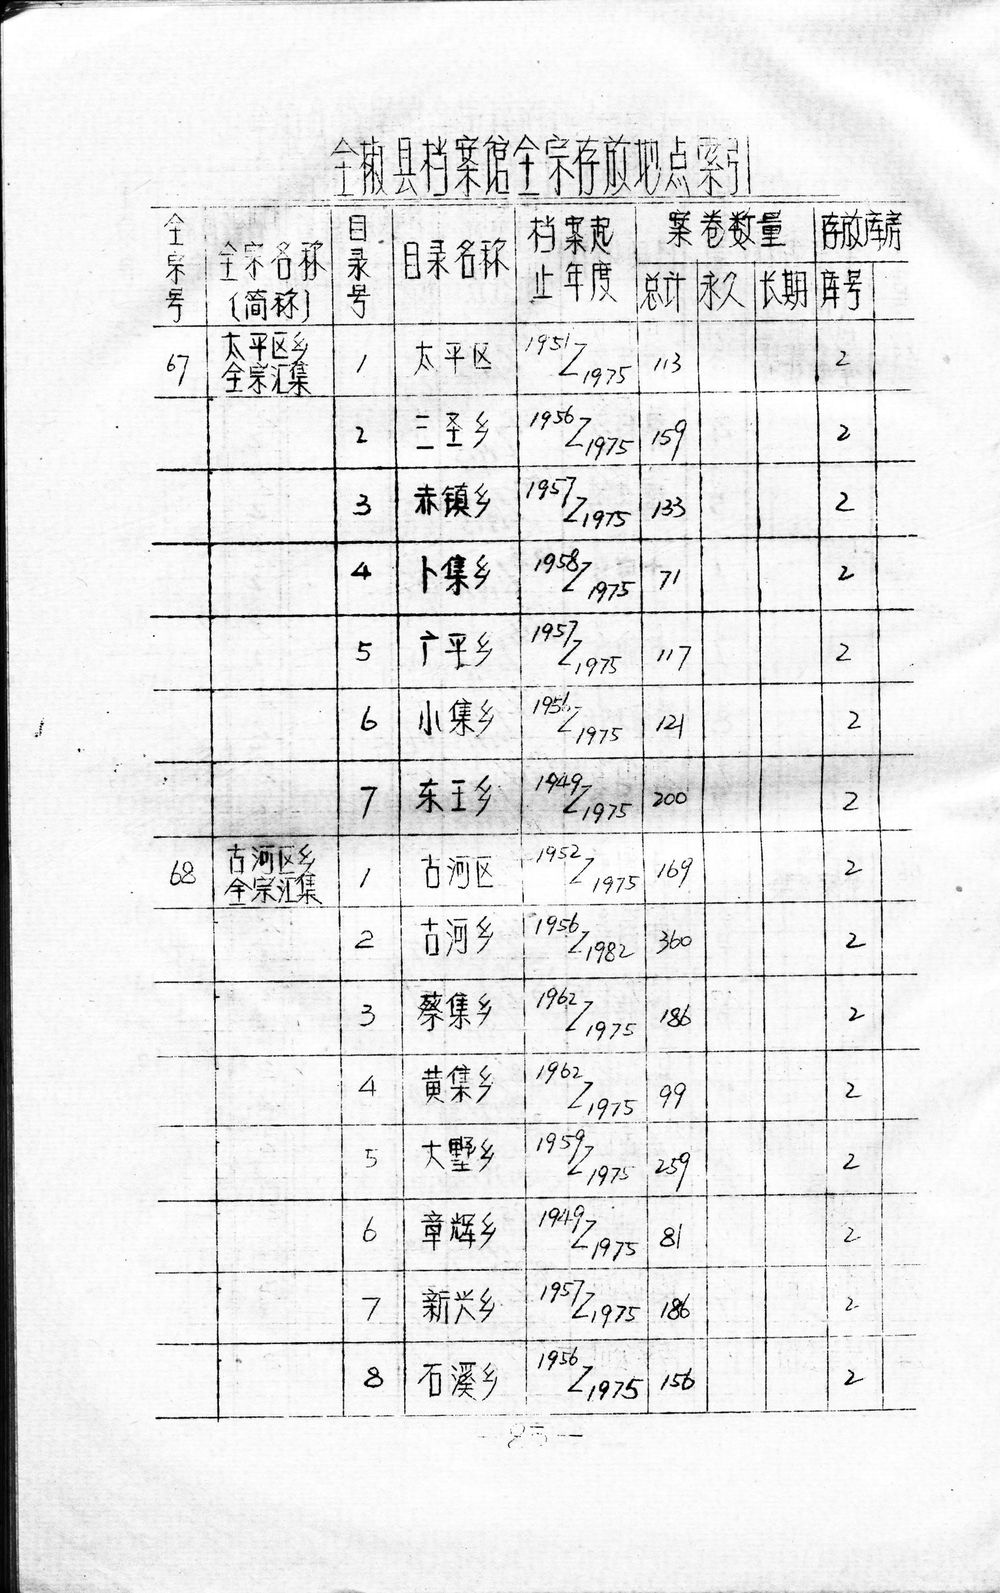 全椒县档案馆全宗存放地点索引
全宗号 全宗名称(简称) 目录号 目录名称 档案起止年度 案卷数量 存放库房
总计 永久 长期 库号
67 太平区乡全宗汇集 1 太平区 1951/1975 113 2
2 三圣乡 1956/1975 159 2
3 赤镇乡 1957/1975 133 2
4 卜集乡 1958/1975 71 2
5 广平乡 1957/1975 117 2
6 小集乡 1956/1975 121 2
7 东王乡 1949/1975 200 2
68 古河区乡全宗汇集 1 古河区 1952/1975 169 2
2 古河乡 1956/1982 360 2
3 蔡集乡 1962/1975 186 2
4 黄集乡 1962/1975 99 2
5 大墅乡 1959/1975 259 2
6 章辉乡 1949/1975 81 2
7 新兴乡 1957/1975 186 2
8 石溪乡 1956/1975 156 2
—85—